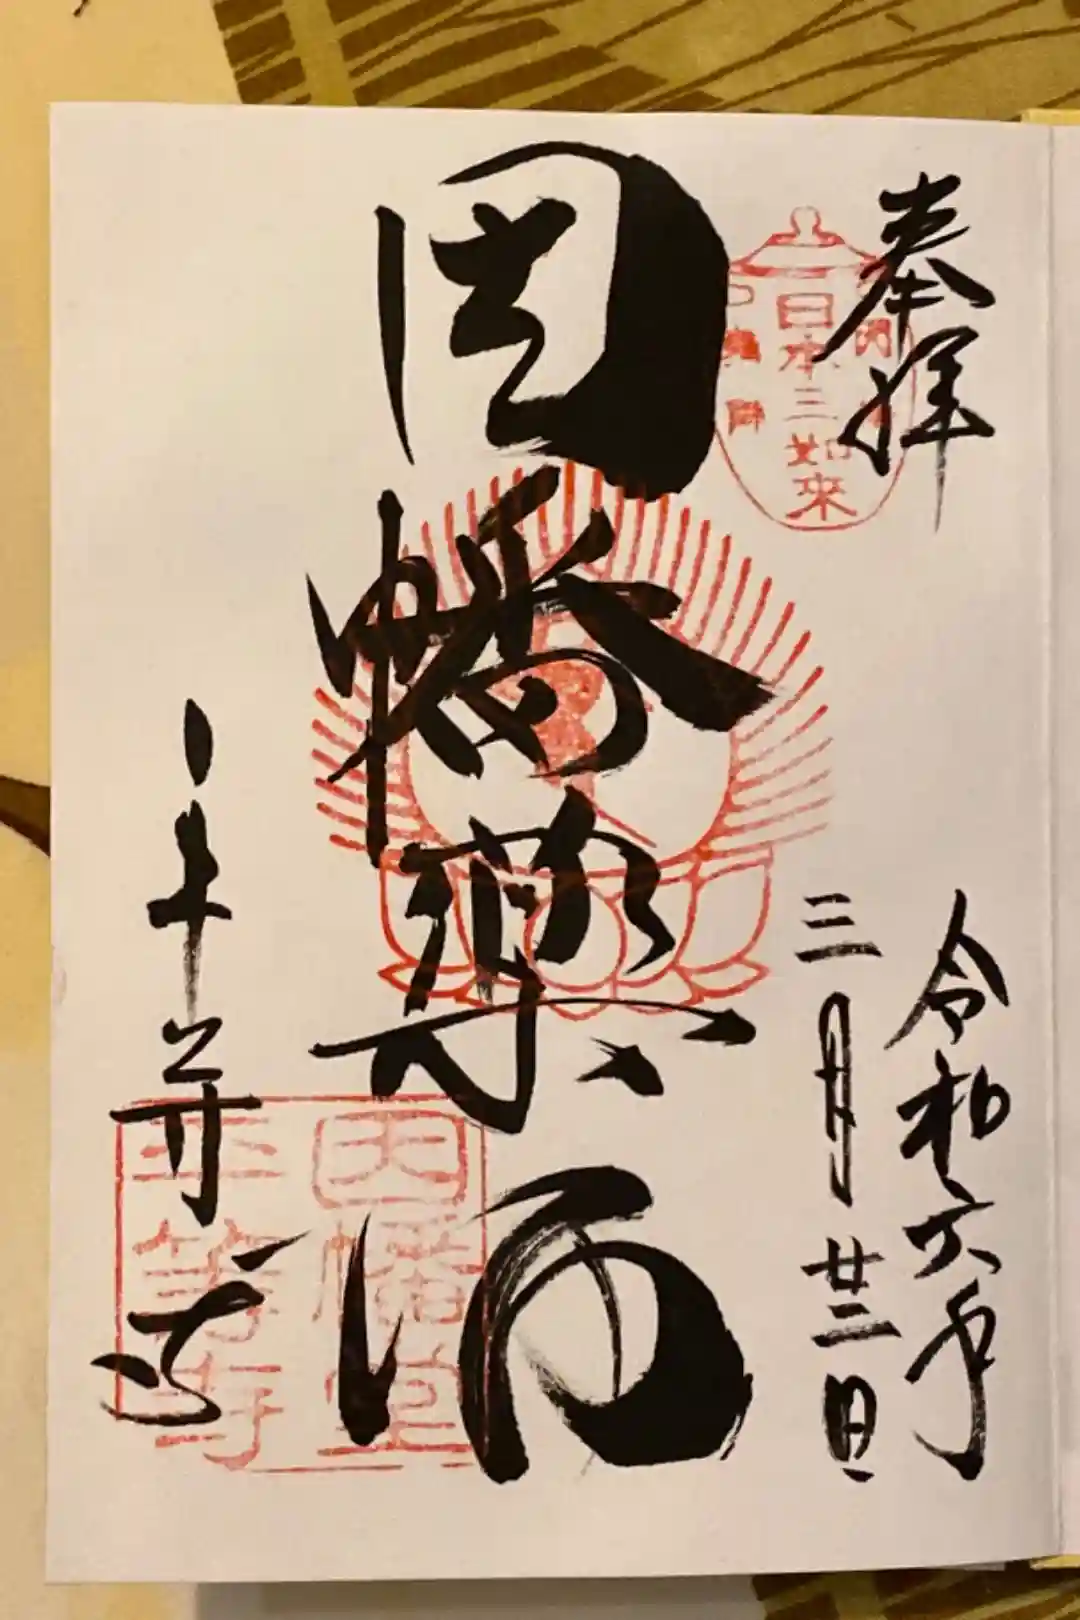 奉拝
日本三如来
令和六年
三月廿二日
因幡薬師
平等寺
因幡堂
平等寺